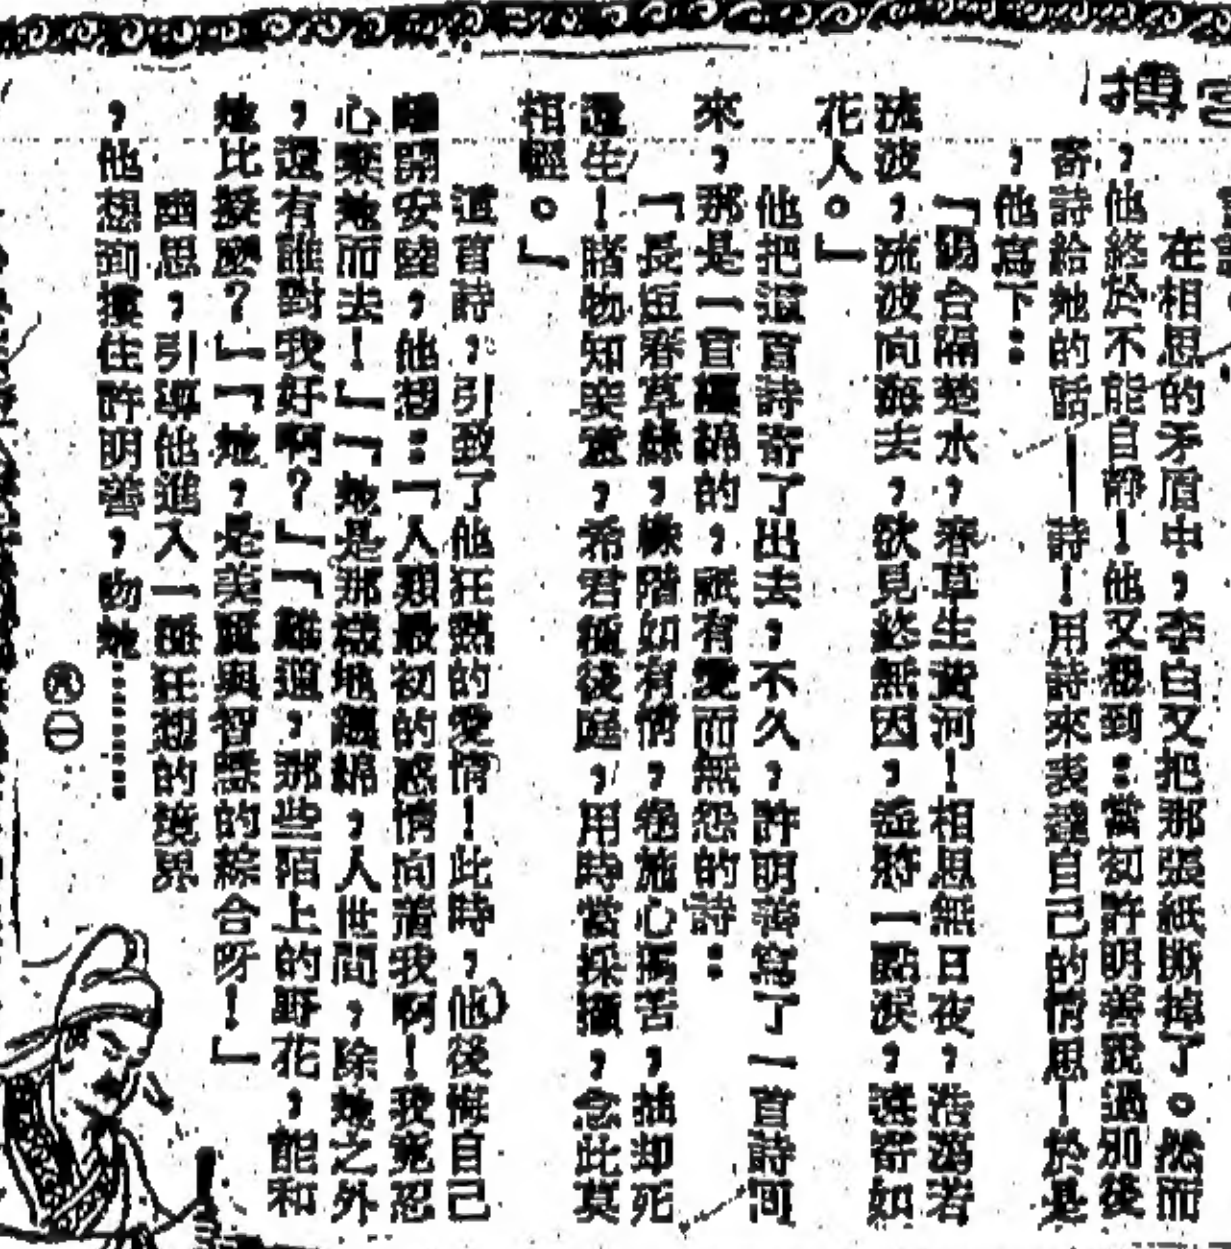 宮
搏
在相思的矛盾中，李白又把那張紙撕掉了。然而
，他終於不能自靜！他又想到：當初許明善說過別後
寄詩給她的話——詩！用詩來表達自己的情思！於是
，他寫下：
「陽台隔楚水，春草生黃河！相思無日夜，浩蕩若
流波，流波向海去，欲見終無因，遙將一點淚，遠寄如
花人。」
他把這首詩寄了出去，不久，許明善寫了一首詩回
來，那是一首纏綿的，祇有愛而無怨的詩：
「長短春草綠，緣階如有情，卷施心獨苦，抽却死
還生！睹物知妾意，希君種後庭，用時當採掇，念此莫
相輕。」
這首詩，引致了他狂熱的愛情！此時，他後悔自己
離開安陸，他想：「人類最初的感情向着我啊！我竟忍
心棄她而去！」「她是那樣地纏綿，人世間，除她之外
，還有誰對我好啊？」「難道，那些陌上的野花，能和
她比擬麼？」「她，是美麗與智慧的綜合呀！」
幽思，引導他進入一種狂想的境界
，他想到摟住許明善，吻她………